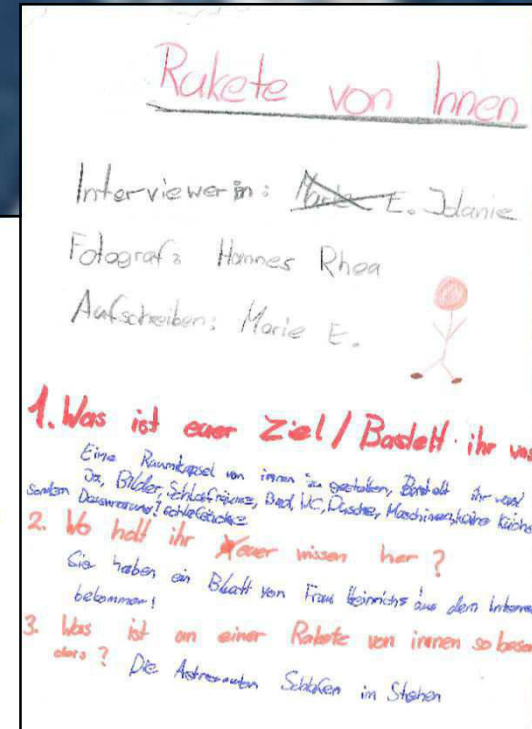 Rakete von Innen
Interviewerin: E. Idanie
Fotograf: Hannes Rhea
Aufschreiben: Marie E.
1. Was ist euer Ziel / Bastelt ihr was
Eine Raumkapsel von innen zu gestalten, ihr was
Ja, Bilder, Schlafräume, Bad, WC, Dusche, Küche
2. Wo habt ihr euer wissen her?
Sie haben ein Blatt von Frau Heinrichs aus dem Interne
bekommen!
3. Was ist an einer Rakete von innen so beson
ders?
Die Astronauten Schlafen im Stehen